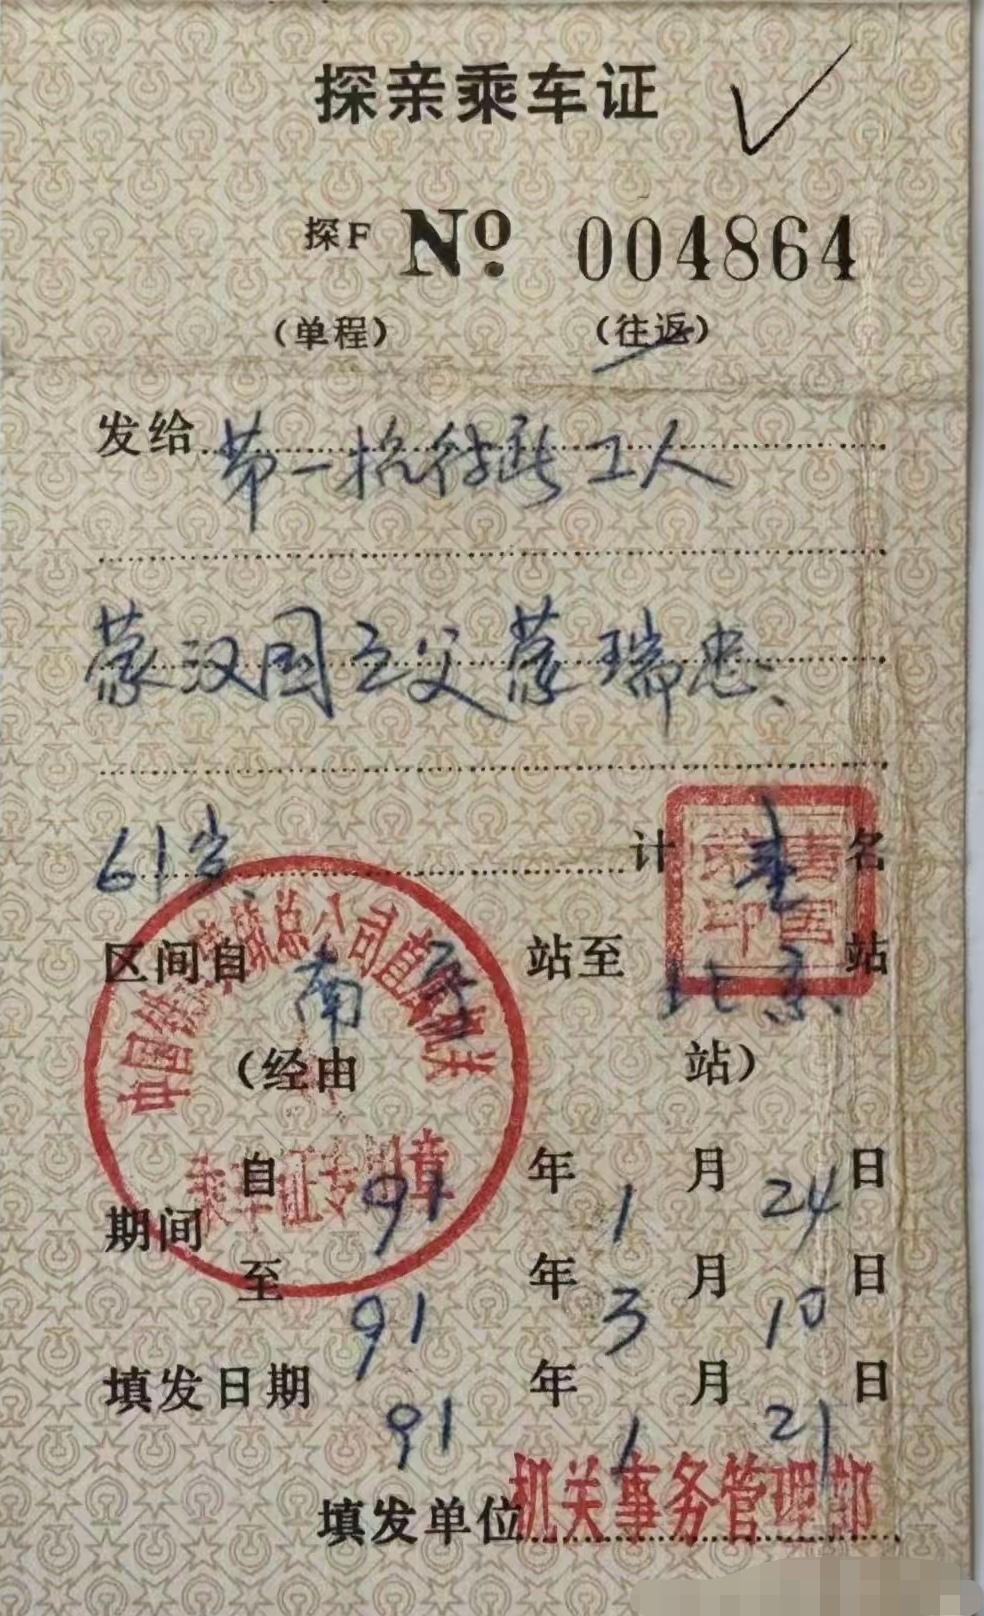 探亲乘车证
探F No 004864
（单程） （往返）
发给 第一招待所工人
蒙汉国之父蒙瑞忠、
61岁、 计 壹 名
区间自 南 站至 北京 站
（经由 站）
期间 自 91 年 1 月 24 日
至 91 年 3 月 10 日
填发日期 91 年 1 月 21 日
填发单位 机关事务管理部
中国铁 总公司直属机关
乘车证专用章
印